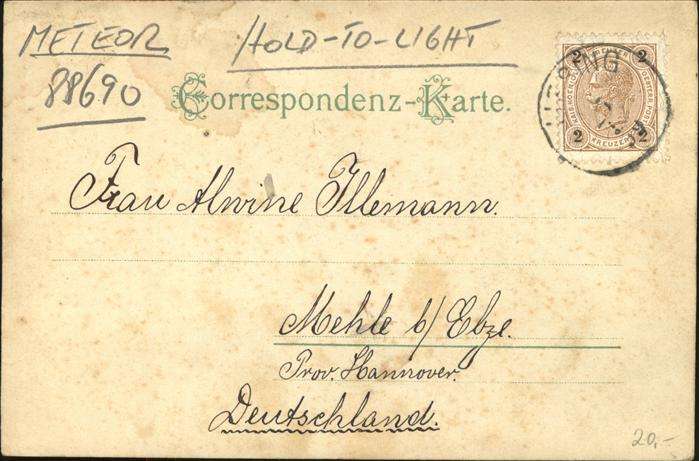 METEOR
88690
HOLD-TO-LIGHT
Correspondenz-Karte.
2 2
2 2
KREUZER
Frau Alwine Illemann.
Mehle b/ Elze.
Prov. Hannover.
Deutschland.
20,-